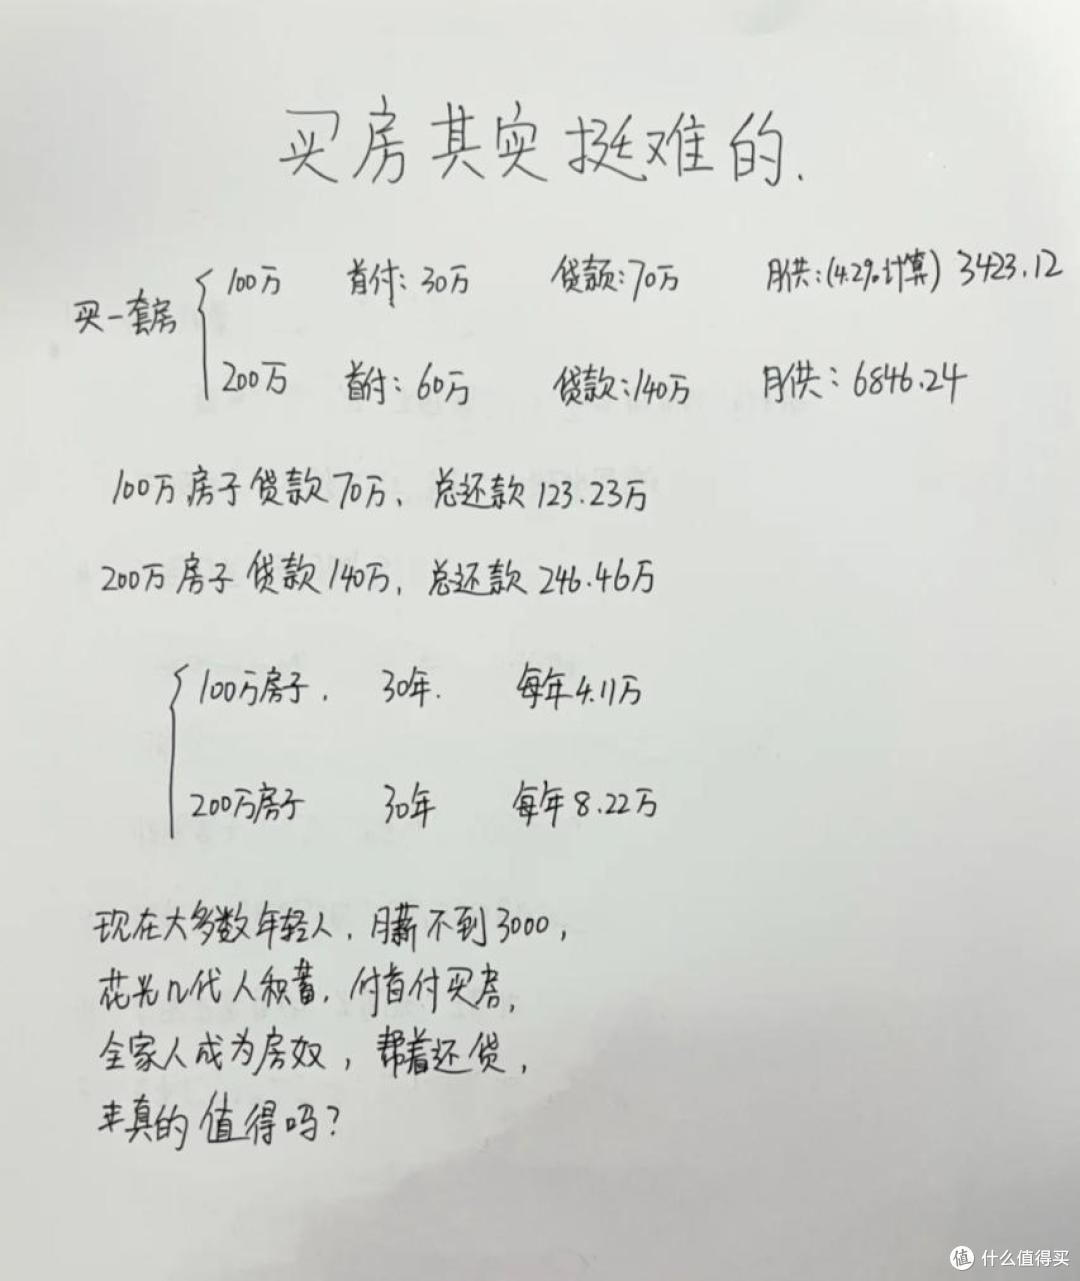 买房其实挺难的.
买一套房
100万 首付:30万 贷款:70万 月供:(4.2%计算) 3423.12
200万 首付:60万 贷款:140万 月供:6846.24
100万房子贷款70万, 总还款123.23万
200万房子贷款140万, 总还款246.46万
100万房子. 30年. 每年4.11万
200万房子 30年 每年8.22万
现在大多数年轻人, 月薪不到3000,
花光几代人积蓄, 付首付买房,
全家人成为房奴, 帮着还贷,
真的值得吗?
值 什么值得买